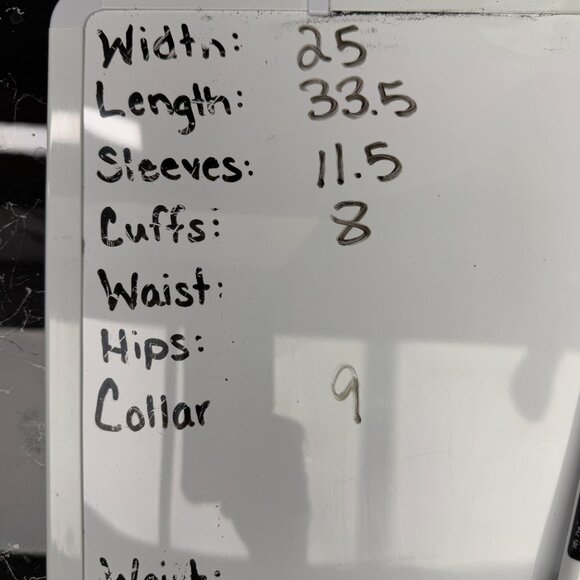 Width: 25
Length: 33.5
Sleeves: 11.5
Cuffs: 8
Waist:
Hips:
Collar 9